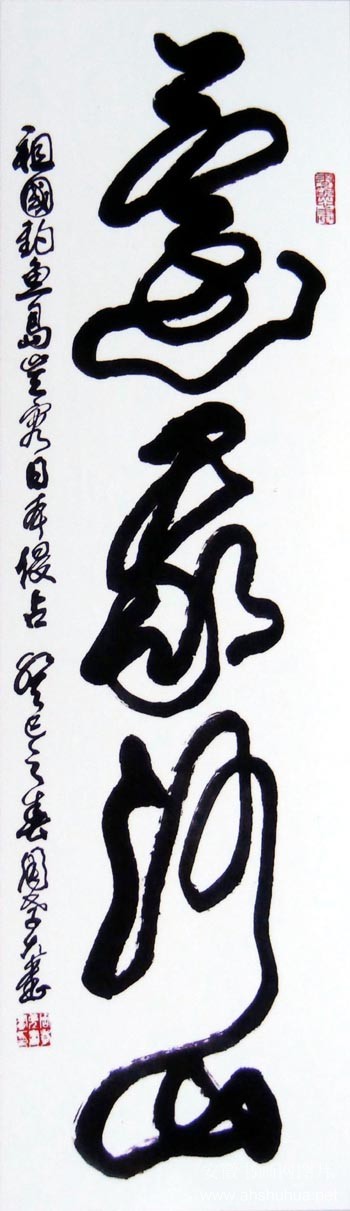 還我河山
祖國釣魚島豈容日本侵占 癸巳之春周
www.ahshuhua.net